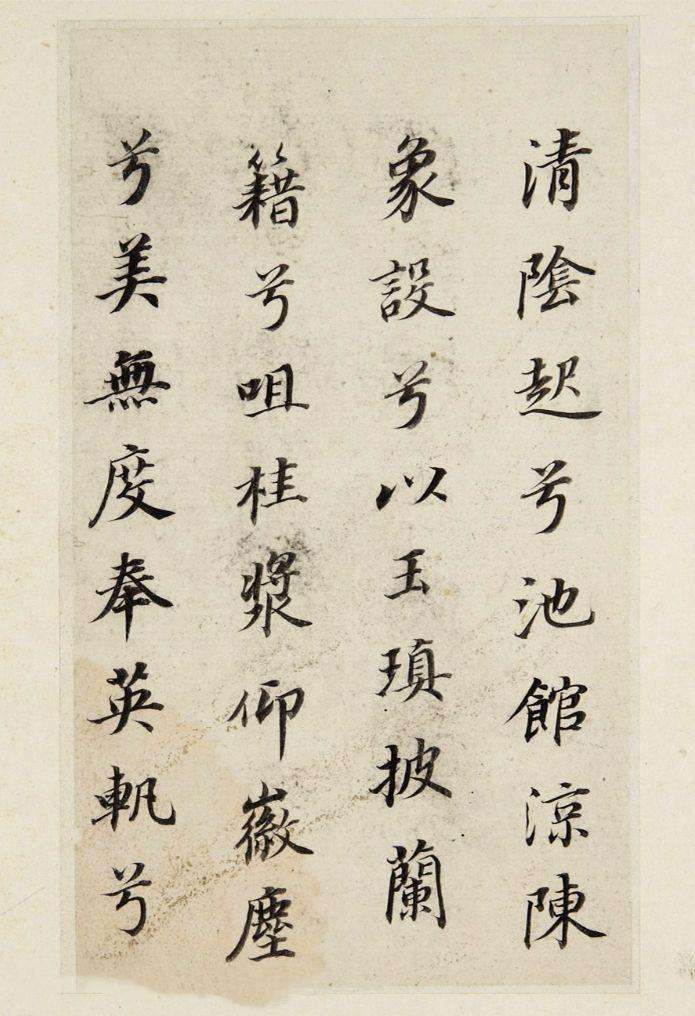 清陰起兮池館涼陳
象設兮以玉瑱披蘭
籍兮咀桂漿仰徽塵
兮美無度奉英軌兮